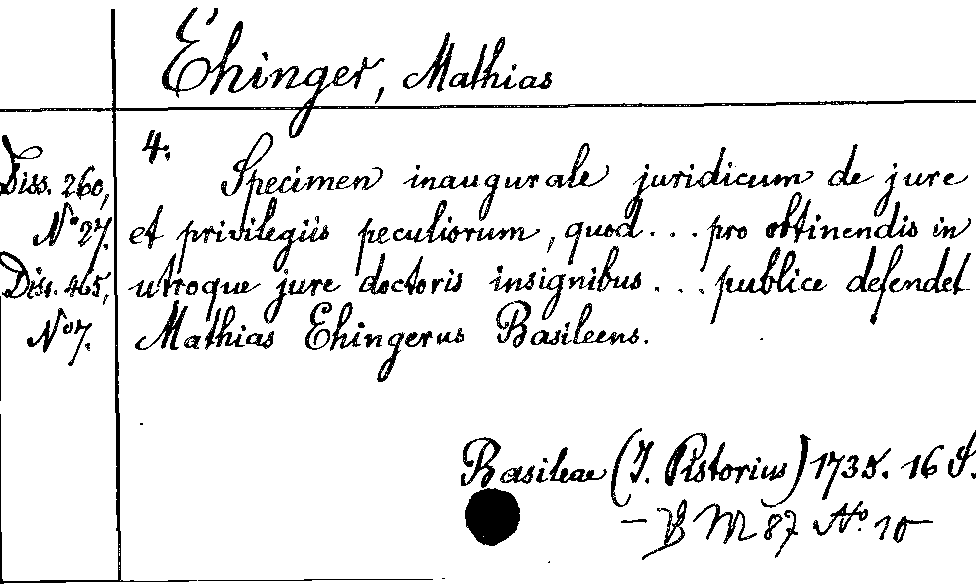 Ehinger, Mathias
4.
Diss. 260, Specimen inaugurale juridicum de jure
No 27. et privilegiis peculiorum, quod... pro obtinendis in
Diss. 465, utroque jure doctoris insignibus... publice defendet
No 7. Mathias Ehingerus Basileens.
Basileae (J. Pistorius) 1735. 16 S.
- B M 87 No 10 -